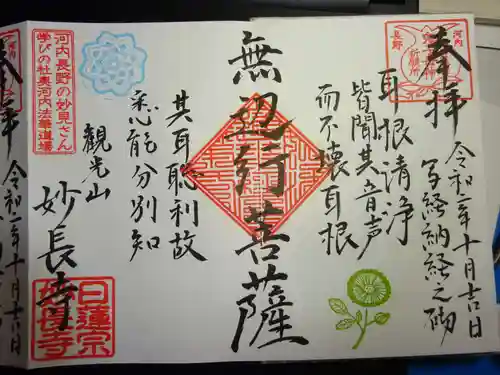 奉拝
令和二年十月吉日
写経納経之砌
耳根清浄
皆聞其音声
而不壊耳根
無辺行菩薩
其耳聡利故
悉能分別知
観光山
妙長寺
河内長野の妙見さん
学びの社奥河内法華道場
日蓮宗
妙長寺
河内
長野
奉拝
令和二年十月吉日